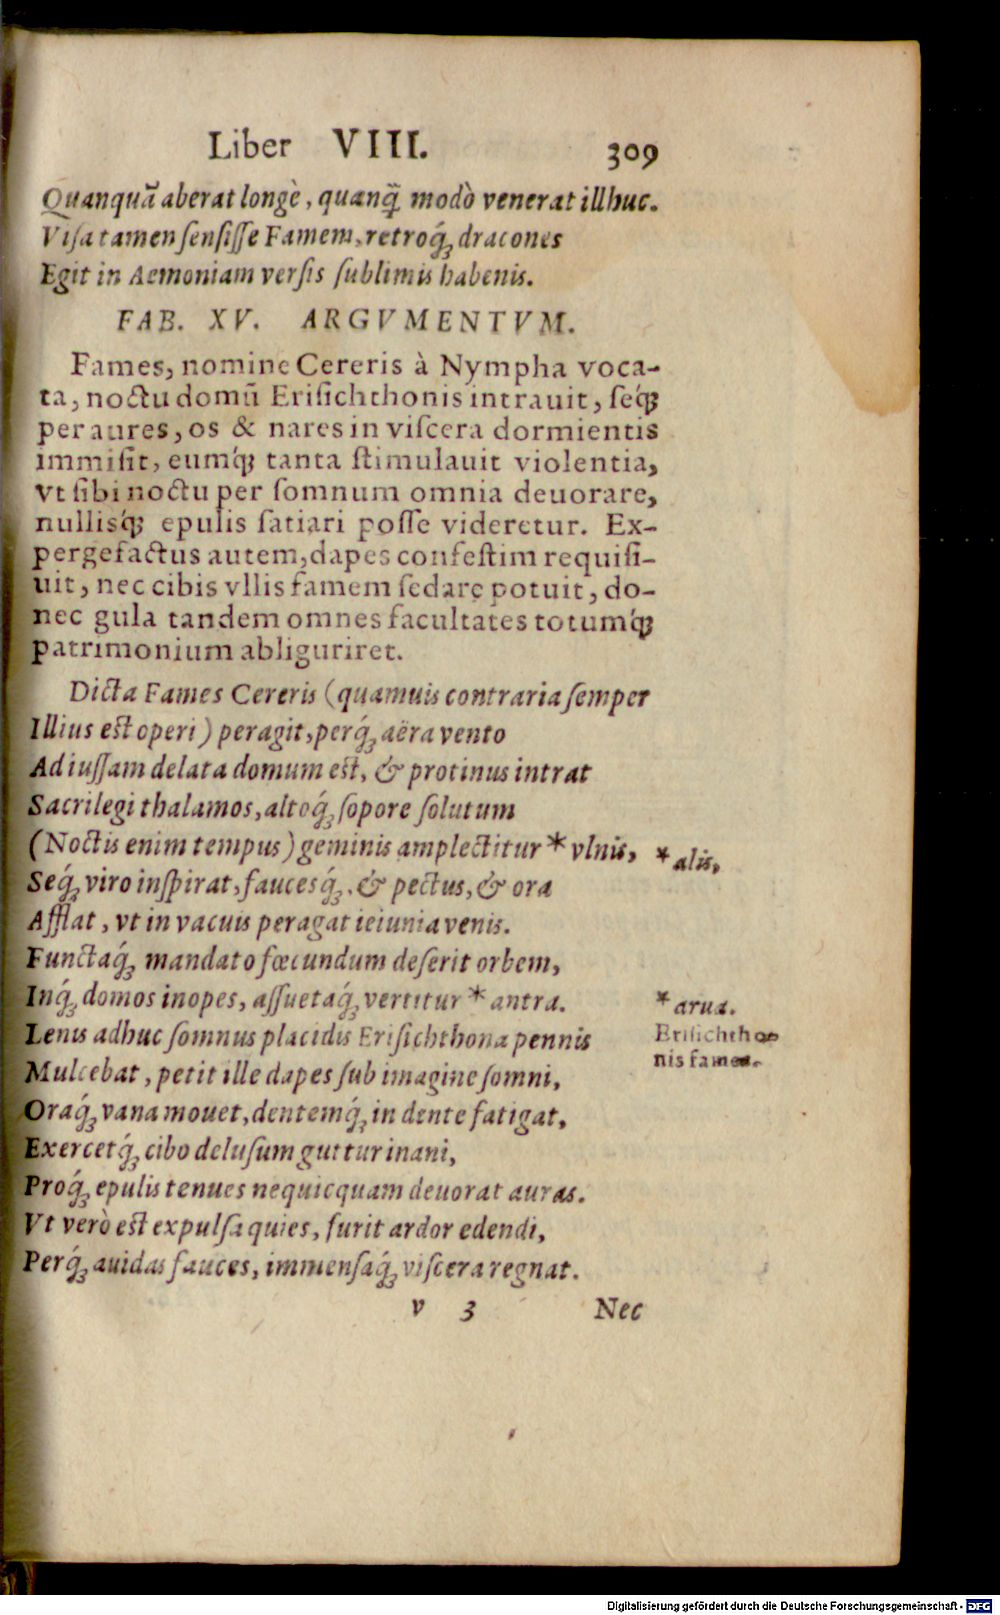 Liber VIII. 309
Quanquã aberat longè, quanq̃ modò venerat illhuc.
Viſa tamen ſenſiſſe Famem, retroq́ꝫ dracones
Egit in Aemoniam verſis ſublimis habenis.
FAB. XV. ARGVMENTVM.
Fames, nomine Cereris à Nympha voca-
ta, noctu domũ Eriſichthonis intrauit, ſeq́ꝫ
per aures, os & nares in viſcera dormientis
immiſit, eumq́ꝫ tanta ſtimulauit violentia,
vt ſibi noctu per ſomnum omnia deuorare,
nullisq́ꝫ epulis ſatiari poſſe videretur. Ex-
pergefactus autem, dapes confeſtim requiſi-
uit, nec cibis vllis famem ſedare potuit, do-
nec gula tandem omnes facultates totumq́ꝫ
patrimonium abliguriret.
Dicta Fames Cereris (quamuis contraria ſemper
Illius eſt operi) peragit, perq́ꝫ aëra vento
Ad iuſſam delata domum eſt, & protinus intrat
Sacrilegi thalamos, altoq́ꝫ ſopore ſolutum
(Noctis enim tempus) geminis amplectitur * vlnis,
* alis,
Seq́ꝫ viro inſpirat, faucesq́ꝫ, & pectus, & ora
Afflat, vt in vacuis peragat ieiunia venis.
Functaq́ꝫ mandato fœcundum deſerit orbem,
Inq́ꝫ domos inopes, aſſuetaq́ꝫ vertitur * antra.
* arua.
Lenis adhuc ſomnus placidis Eriſichthona pennis
Eriſichtho-
nis fames.
Mulcebat, petit ille dapes ſub imagine ſomni,
Oraq́ꝫ vana mouet, dentemq́ꝫ in dente fatigat,
Exercetq́ꝫ cibo deluſum guttur inani,
Proq́ꝫ epulis tenues nequicquam deuorat auras.
Vt verò eſt expulſa quies, furit ardor edendi,
Perq́ꝫ auidas fauces, immenſaq́ꝫ viſcera regnat.
v 3 Nec
Digitalisierung gefördert durch die Deutsche Forschungsgemeinschaft - DFG